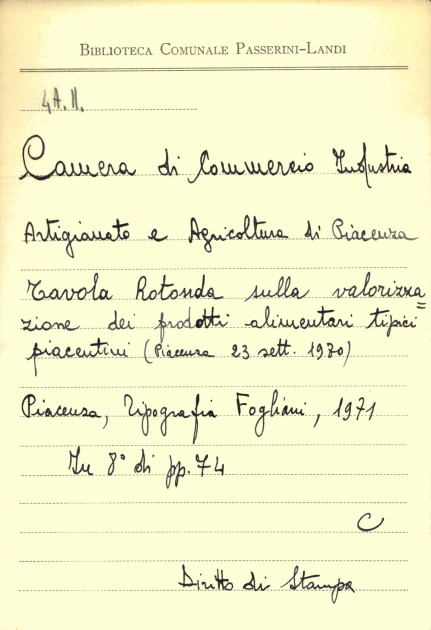 BIBLIOTECA COMUNALE PASSERINI-LANDI
4A.II.
Camera di Commercio Industria
Artigianato e Agricoltura di Piacenza
Tavola Rotonda sulla valorizza=
zione dei prodotti alimentari tipici
piacentini (Piacenza 23 sett. 1970)
Piacenza, Tipografia Fogliani, 1971
In 8° di pp. 74
C
Diritto di Stampa